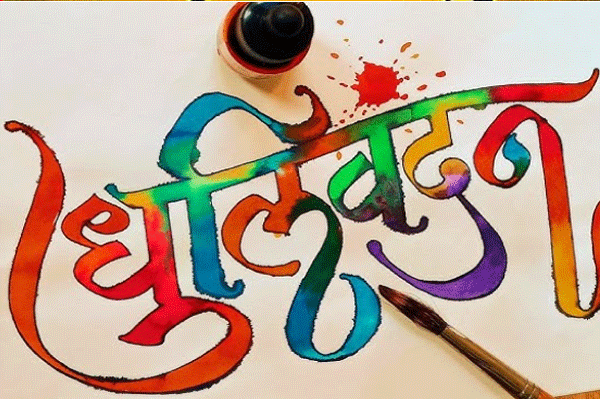 धुलिवंदन